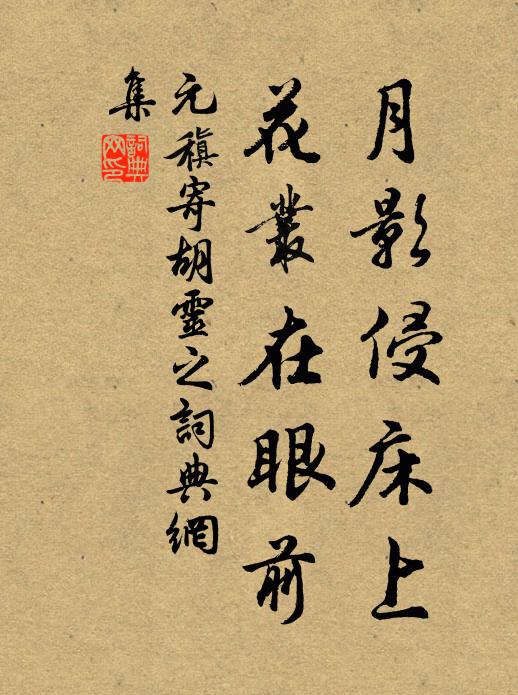 月影侵床上
花叢在眼前
元稹寄胡靈之詞典網
集
詞典
网印